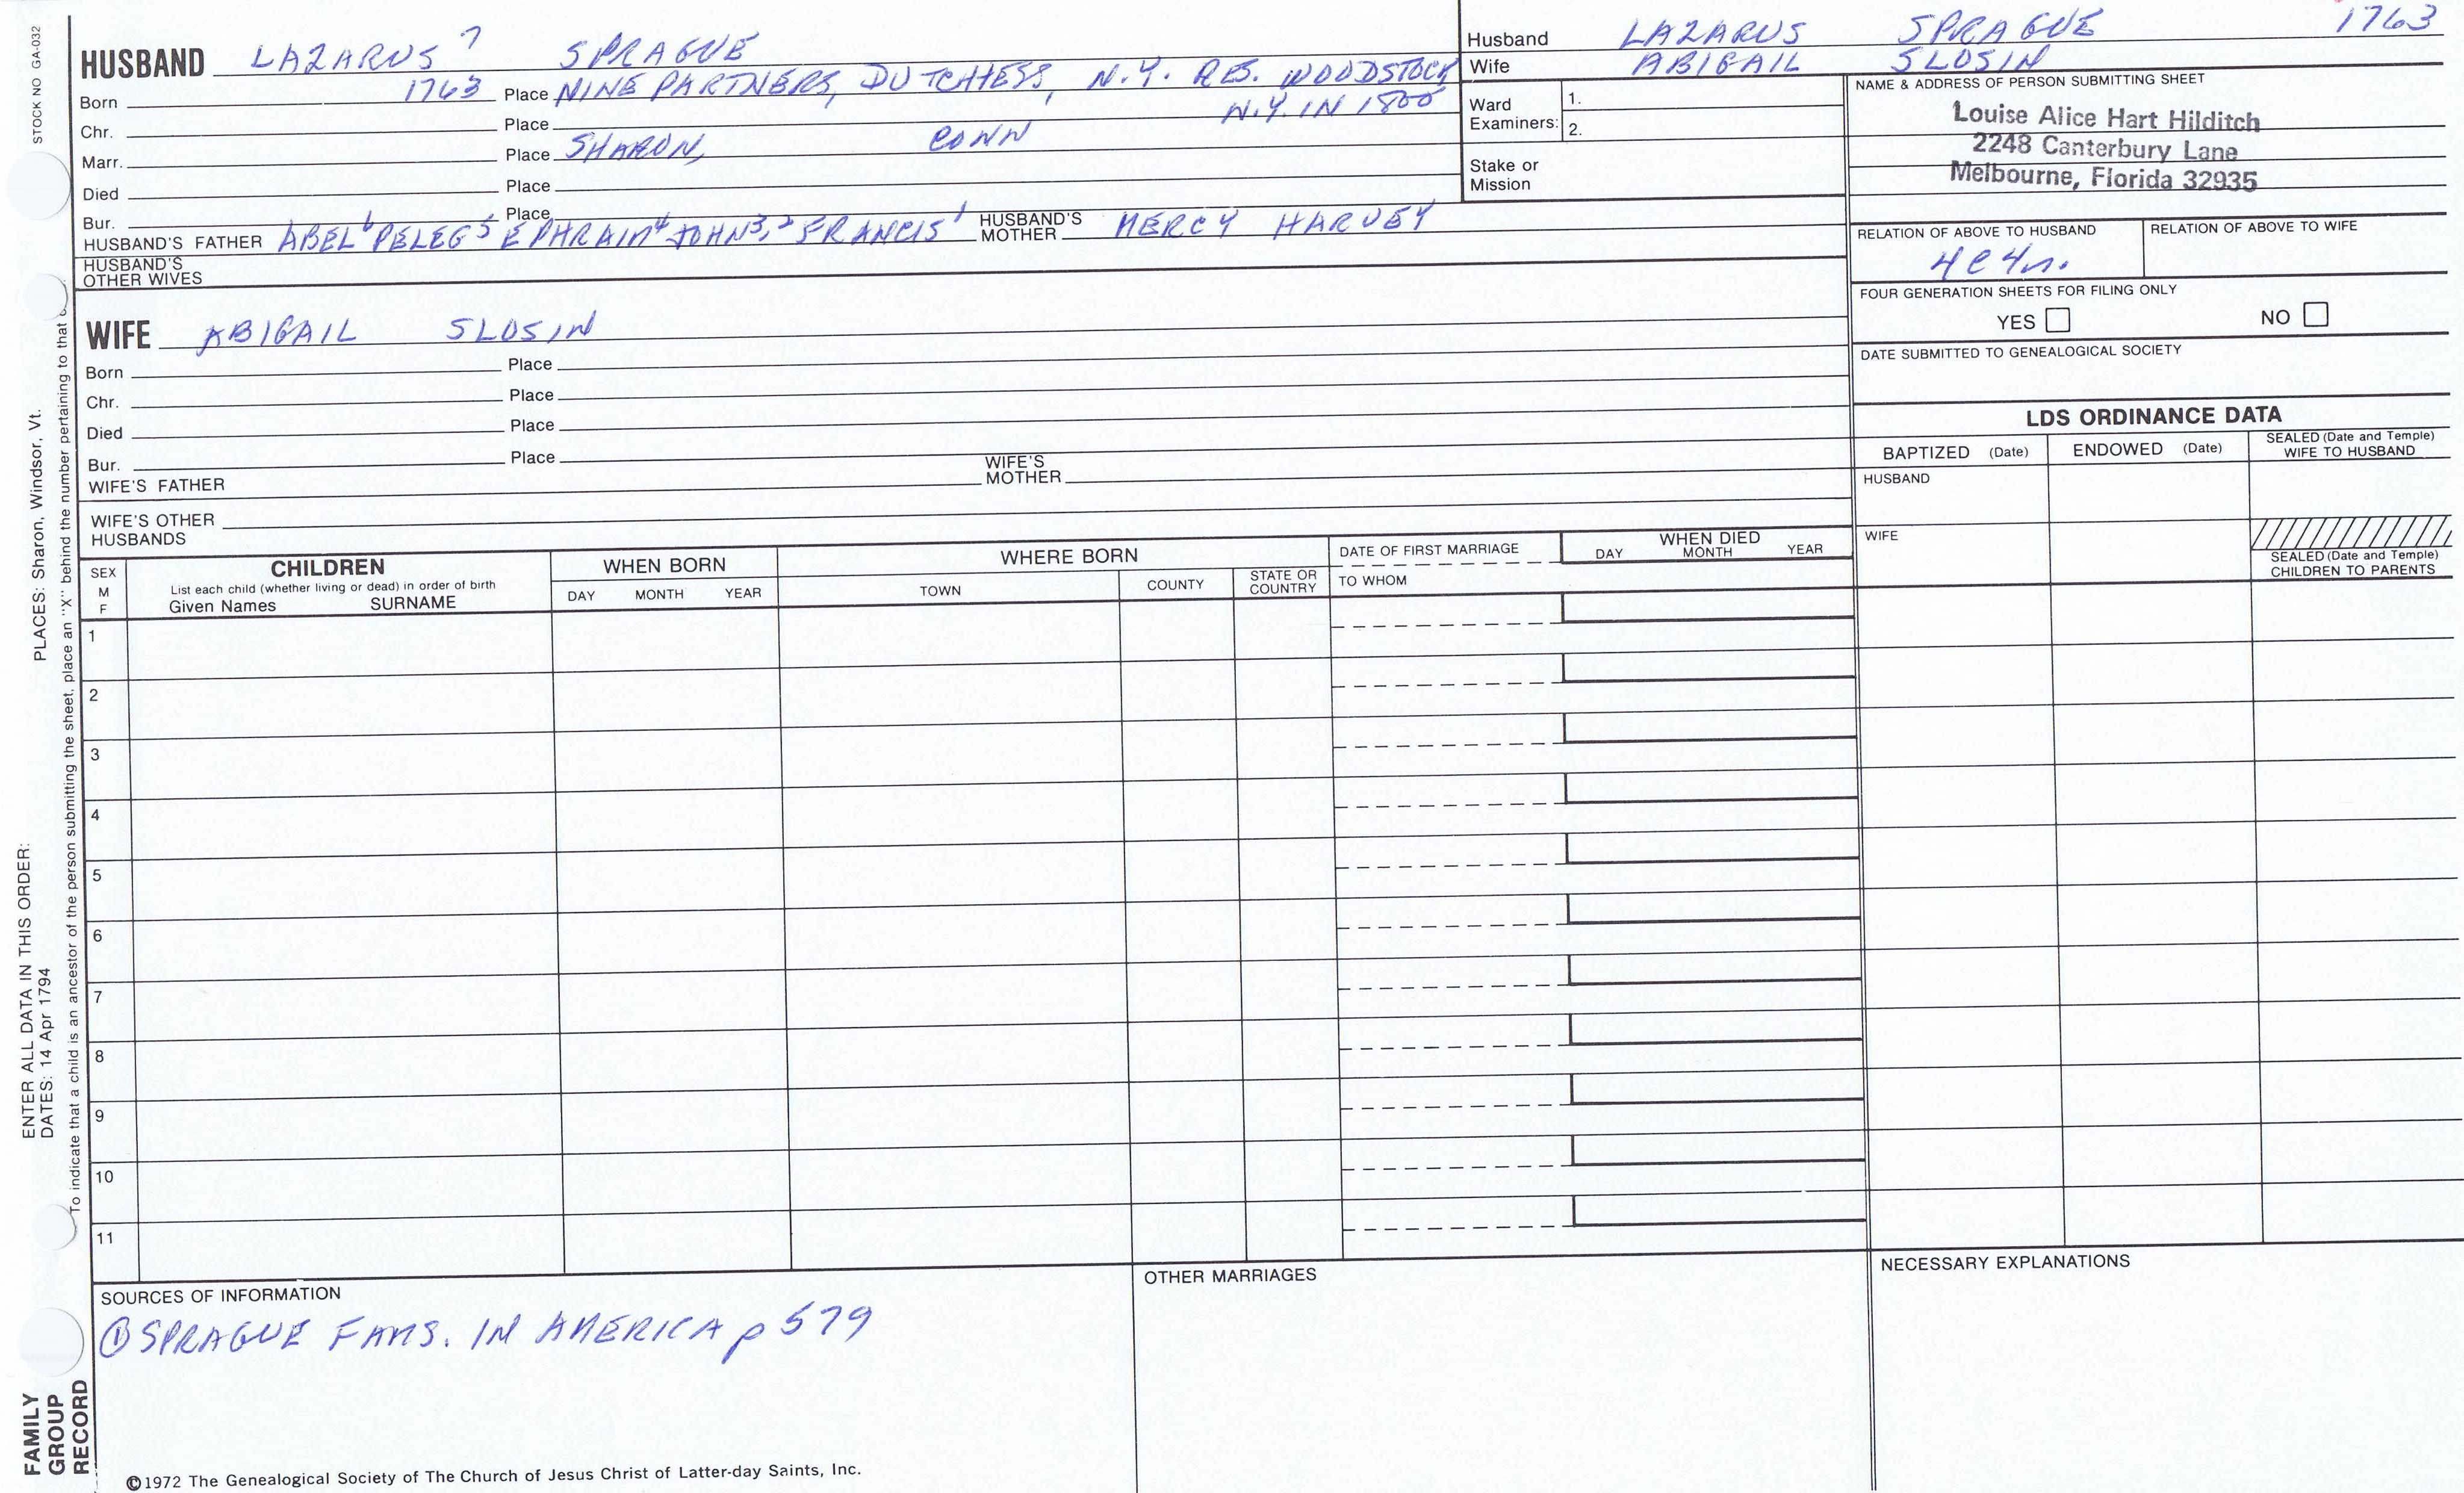 STOCK NO GA-032
PLACES: Sharon, Windsor, Vt.
ENTER ALL DATA IN THIS ORDER:
DATES: 14 Apr 1794
To indicate that a child is an ancestor of the person submitting the sheet, place an "X" behind the number pertaining to that
FAMILY
GROUP
RECORD
HUSBAND LAZARUS 7 SPRAGUE
Born 1763 Place NINE PARTNERS, DUTCHESS, N.Y. RES. WOODSTOCK
Chr. Place N.Y. IN 1800
Marr. Place SHARON, CONN
Died Place
Bur. Place
HUSBAND'S FATHER ABEL 6 PELEG 5 EPHRAIM 4 JOHN 3, 2 FRANCIS 1 HUSBAND'S MOTHER MERCY HARVEY
HUSBAND'S
OTHER WIVES
WIFE ABIGAIL SLOSIN
Born Place
Chr. Place
Died Place
Bur. Place
WIFE'S FATHER WIFE'S MOTHER
WIFE'S OTHER
HUSBANDS
Husband LAZARUS SPRAGUE 1763
Wife ABIGAIL SLOSIN
Ward
Examiners:
1.
2.
Stake or
Mission
NAME & ADDRESS OF PERSON SUBMITTING SHEET
Louise Alice Hart Hilditch
2248 Canterbury Lane
Melbourne, Florida 32935
RELATION OF ABOVE TO HUSBAND RELATION OF ABOVE TO WIFE
4C4r.
FOUR GENERATION SHEETS FOR FILING ONLY
YES NO
DATE SUBMITTED TO GENEALOGICAL SOCIETY
LDS ORDINANCE DATA
BAPTIZED (Date) ENDOWED (Date) SEALED (Date and Temple)
WIFE TO HUSBAND
HUSBAND
WIFE
SEALED (Date and Temple)
CHILDREN TO PARENTS
SEX
M
F
CHILDREN
List each child (whether living or dead) in order of birth
Given Names SURNAME
WHEN BORN
DAY MONTH YEAR
WHERE BORN
TOWN COUNTY STATE OR
COUNTRY
DATE OF FIRST MARRIAGE
TO WHOM
WHEN DIED
DAY MONTH YEAR
1
2
3
4
5
6
7
8
9
10
11
SOURCES OF INFORMATION
① SPRAGUE FAMS. IN AMERICA p 579
OTHER MARRIAGES
NECESSARY EXPLANATIONS
©1972 The Genealogical Society of The Church of Jesus Christ of Latter-day Saints, Inc.